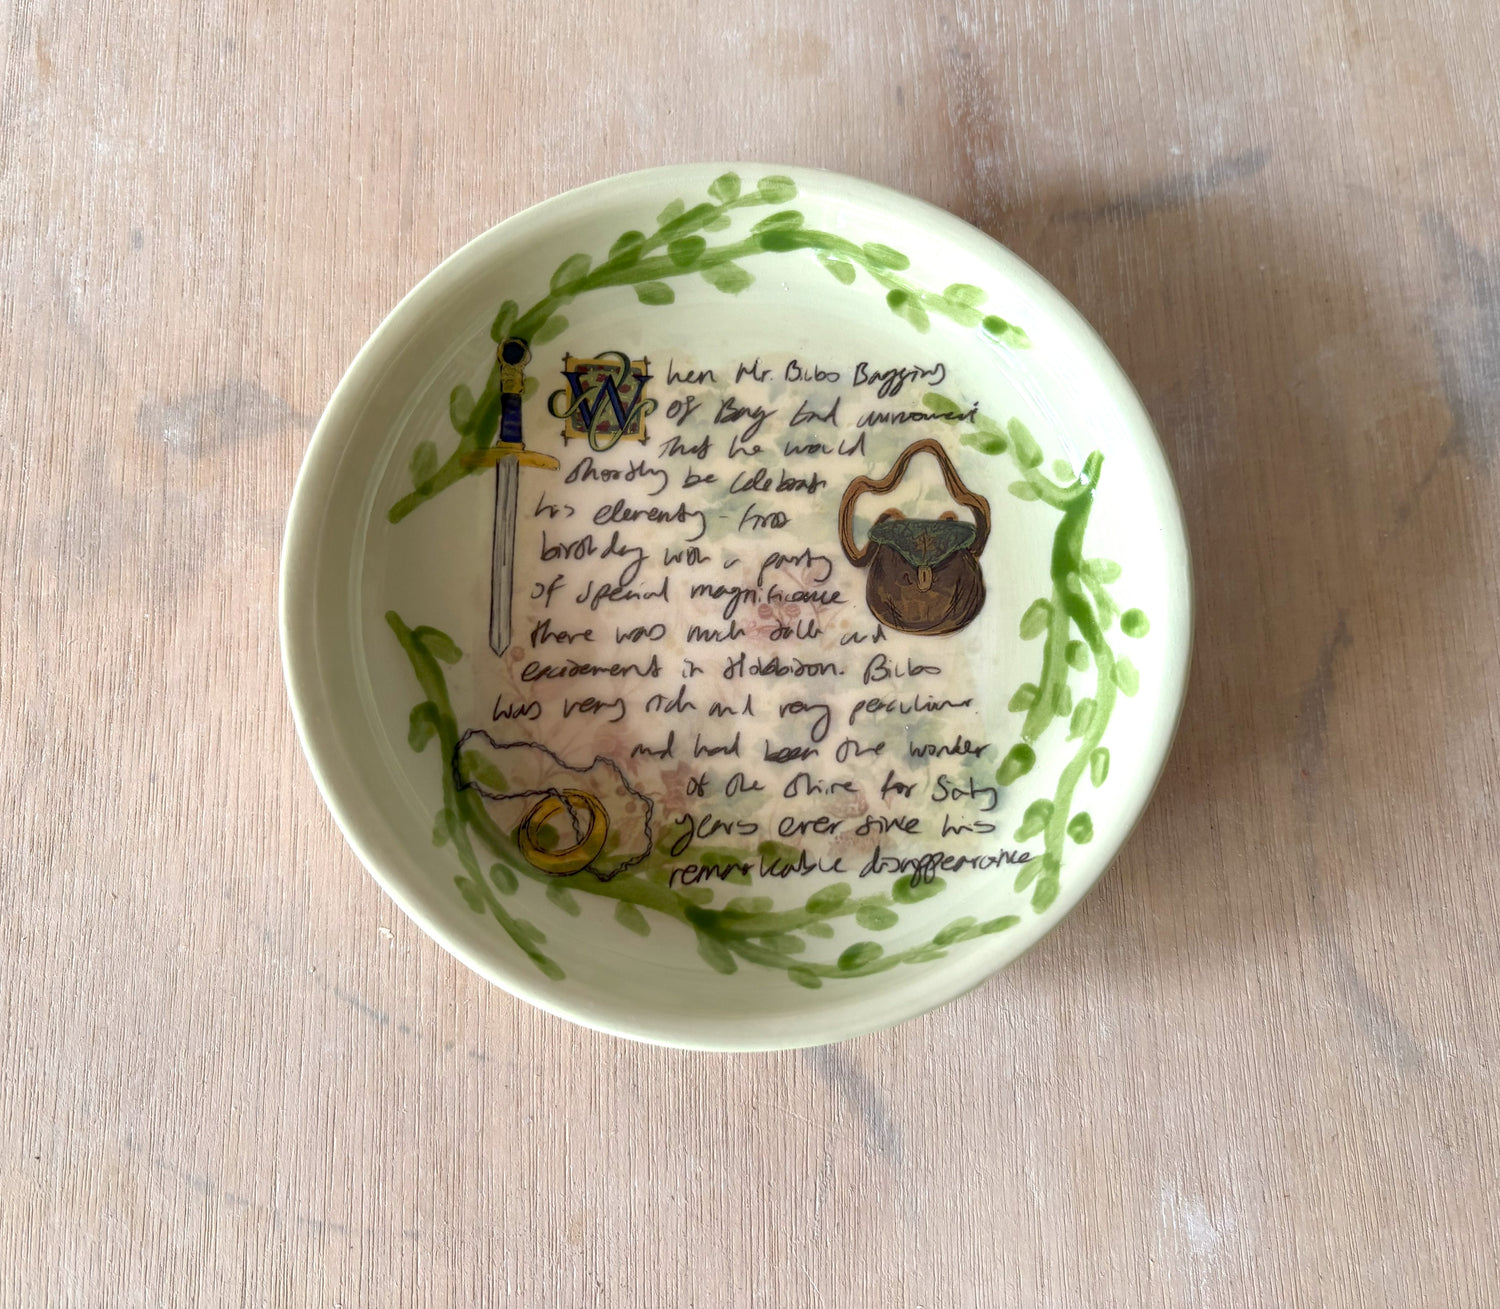 When Mr. Bilbo Baggins
of Bag End announced
that he would
shortly be celebrat
his eleventy-first
birthday with a party
of special magnificence
there was much talk and
excitement in Hobbiton. Bilbo
was very rich and very peculiar
and had been the wonder
of the Shire for sixty
years ever since his
remarkable disappearance